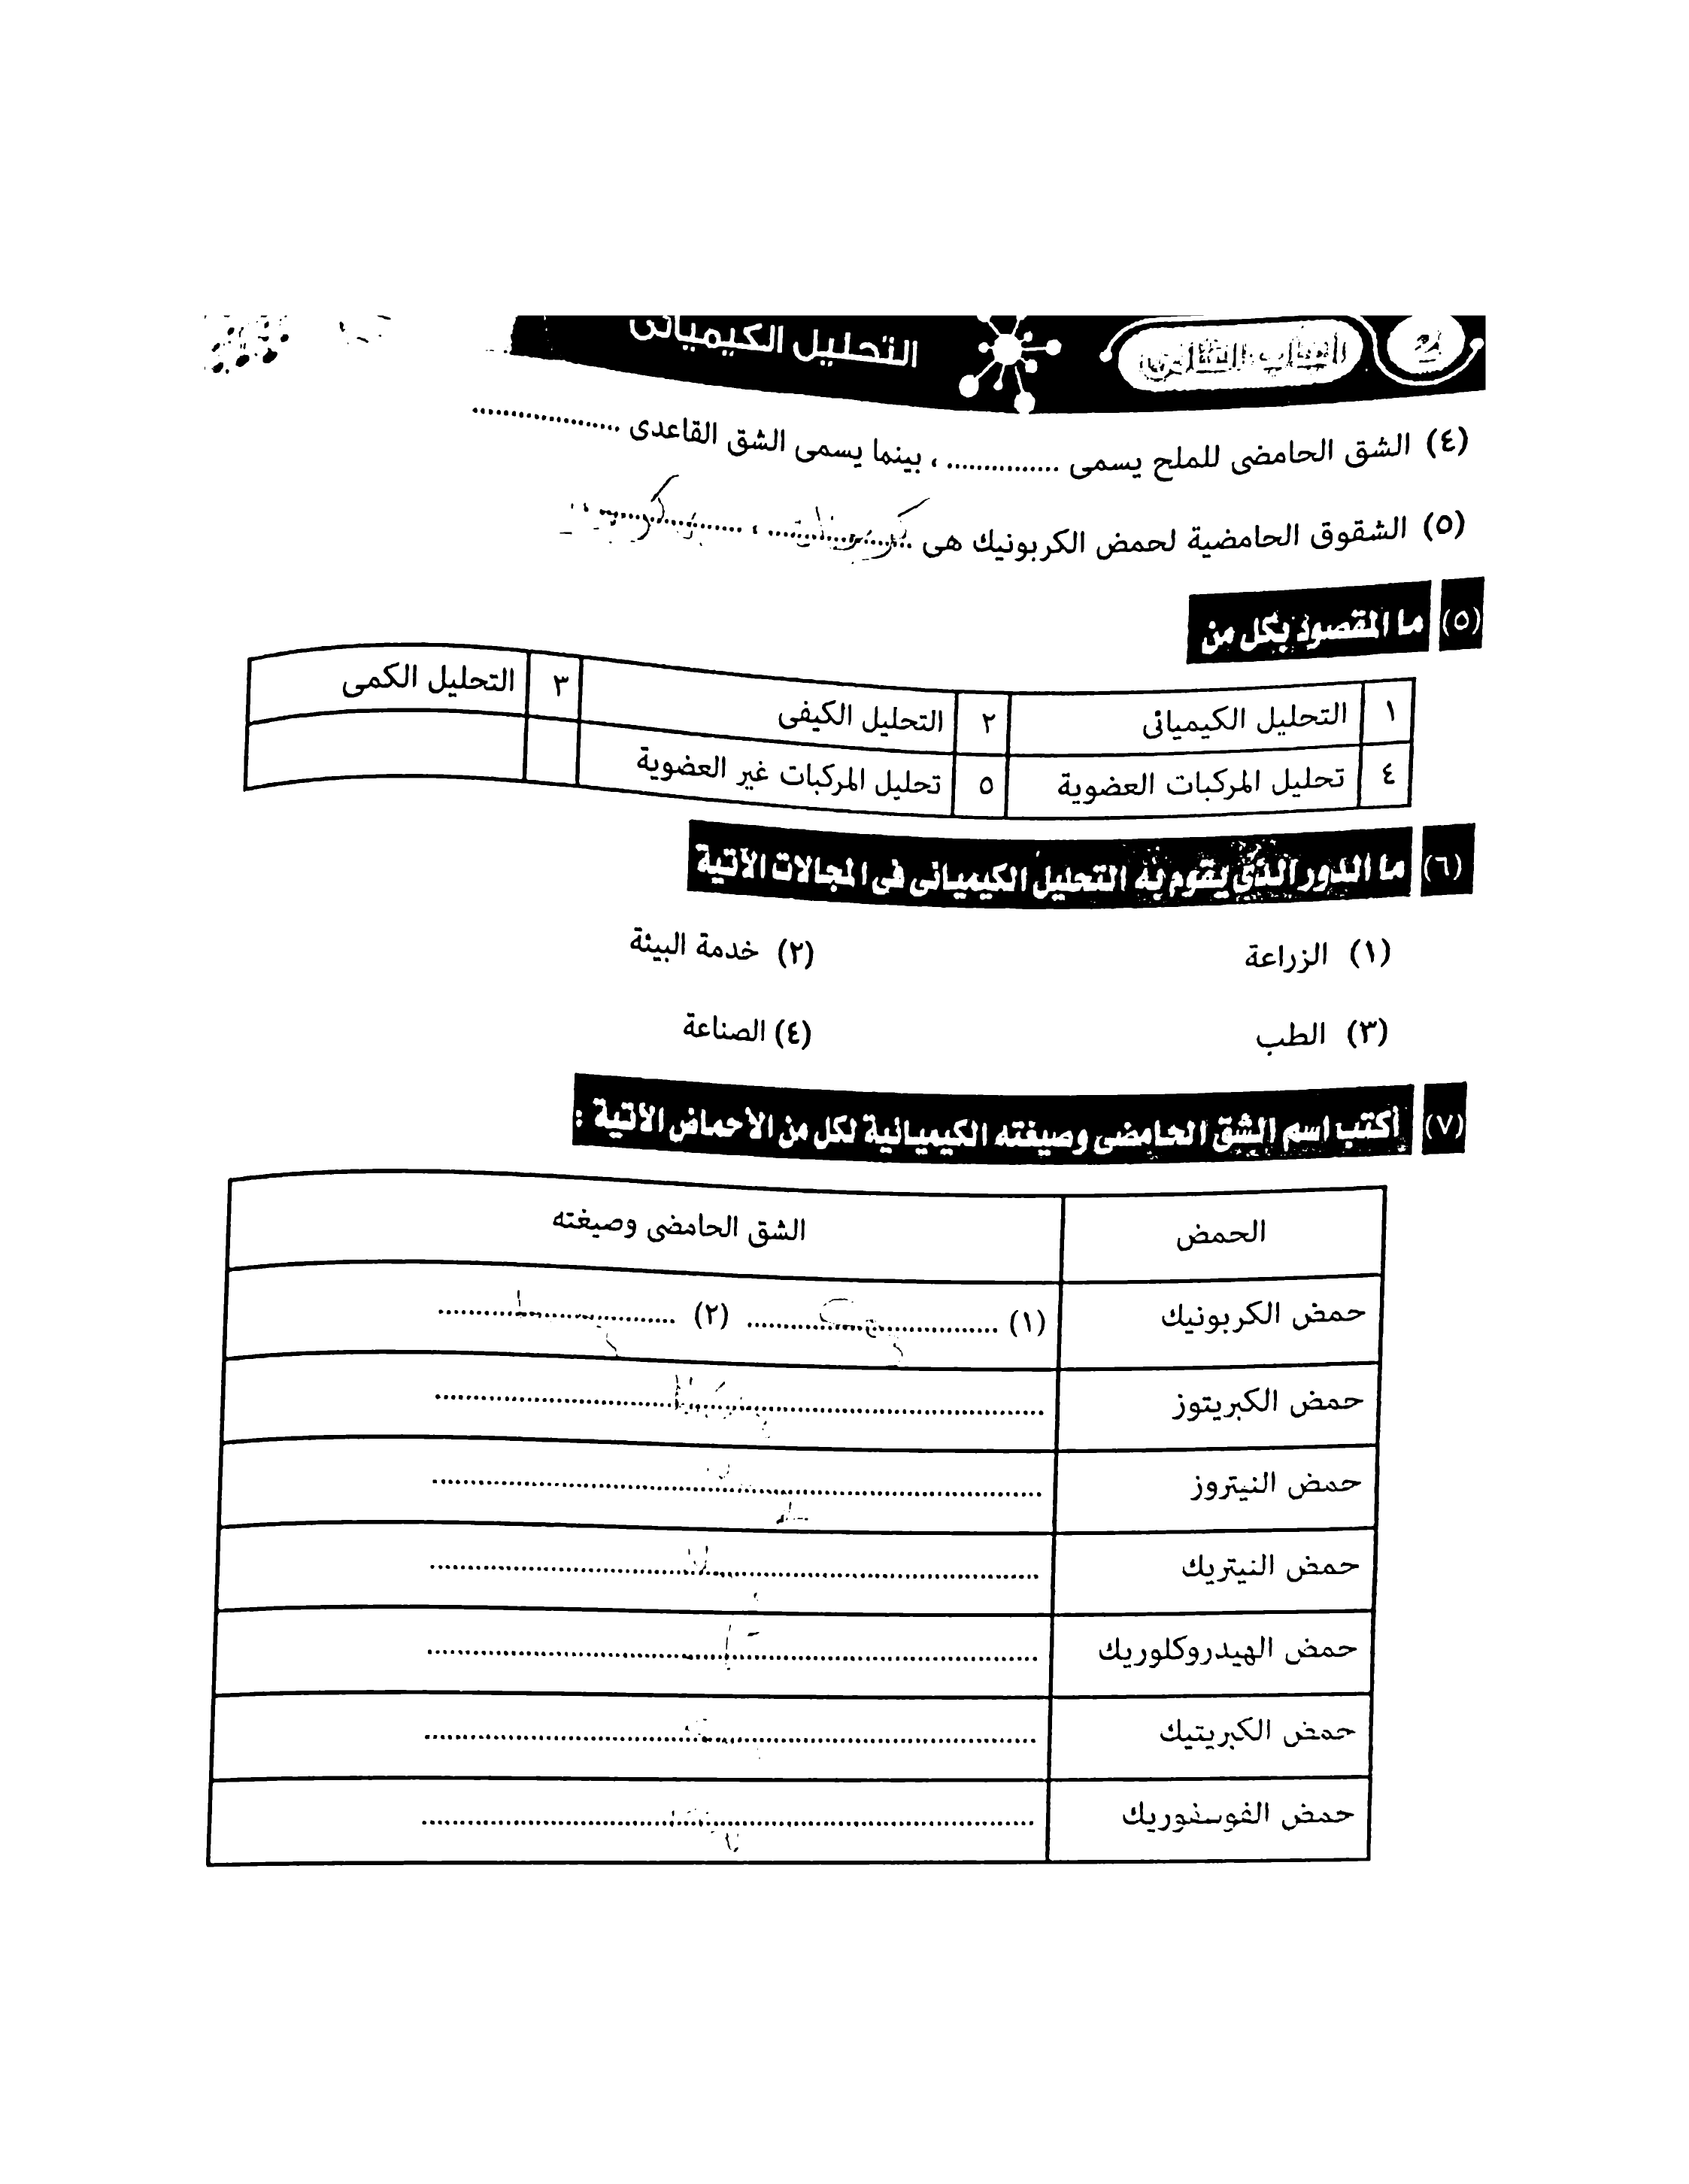 الباب الثانى التحليل الكيميائى
(٤) الشق الحامضى للملح يسمى ............... ، بينما يسمى الشق القاعدى ....................
(٥) الشقوق الحامضية لحمض الكربونيك هى ................... ، ................... .
(٥) ما المقصود بكل من
١ التحليل الكيميائى ٢ التحليل الكيفى ٣ التحليل الكمى
٤ تحليل المركبات العضوية ٥ تحليل المركبات غير العضوية
(٦) ما الدور الذى يقوم به التحليل الكيميائى فى المجالات الآتية
(١) الزراعة (٢) خدمة البيئة
(٣) الطب (٤) الصناعة
(٧) أكتب اسم الشق الحامضى وصيغته الكيميائية لكل من الأحماض الآتية :
الحمض الشق الحامضى وصيغته
حمض الكربونيك (١) .................... (٢) ....................
حمض الكبريتوز ....................
حمض النيتروز ....................
حمض النيتريك ....................
حمض الهيدروكلوريك ....................
حمض الكبريتيك ....................
حمض الفوسفوريك ....................